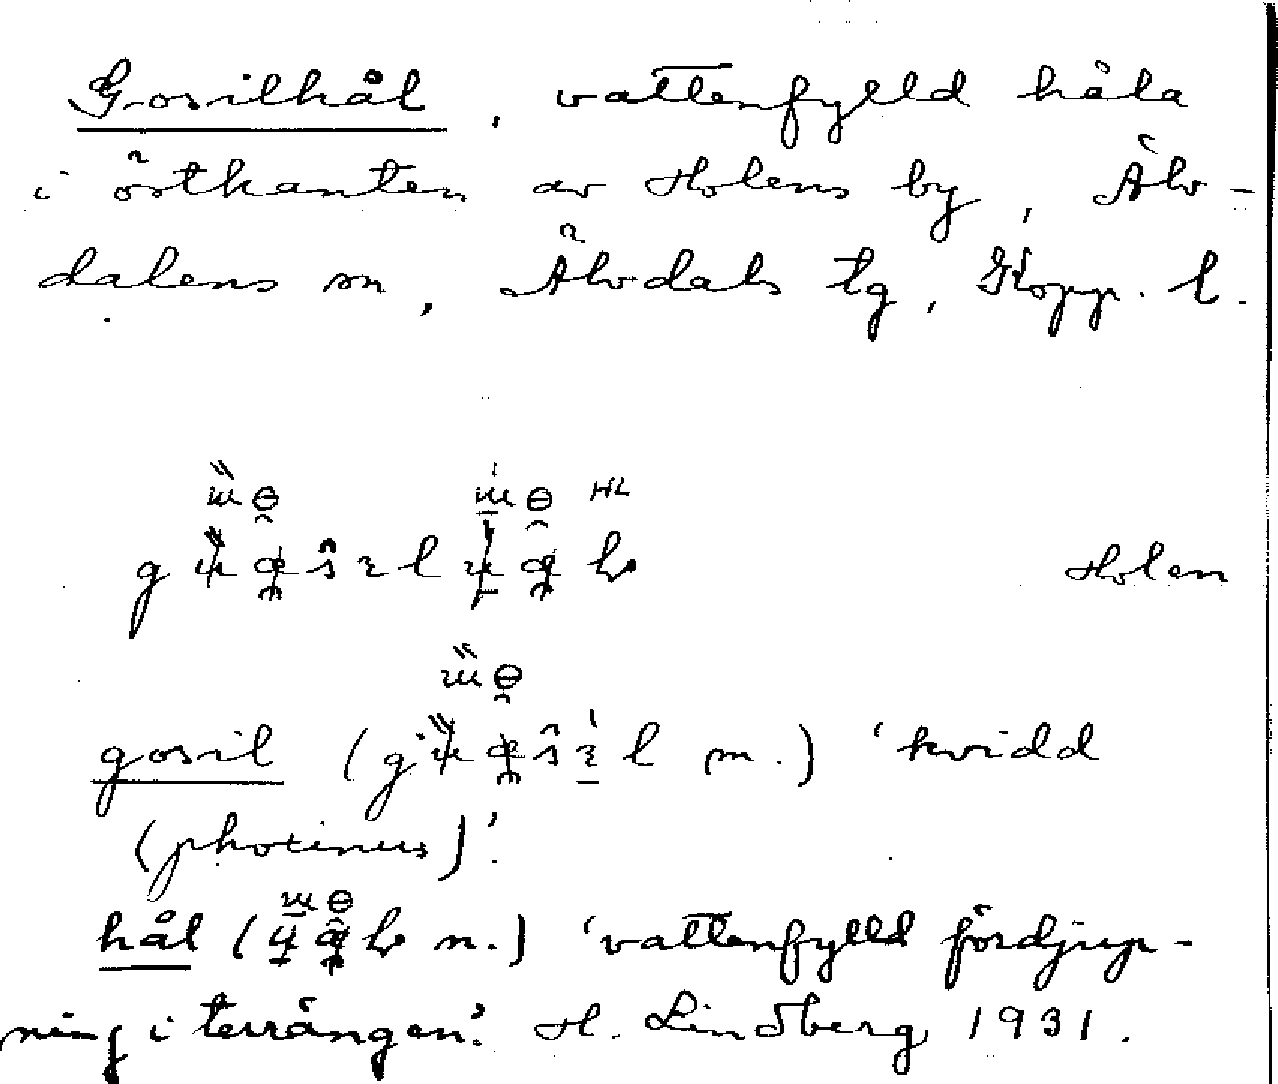 Gosilhål, vattenfylld håla
i östkanten av Holens by, Älv-
dalens sn, Älvdals tg, Kopp. l.
HL
Holen
gosil ( m.) 'kvidd
(photinus)'.
hål ( n.) 'vattenfylld fördjup-
ning i terrängen'. H. Lindberg 1931.